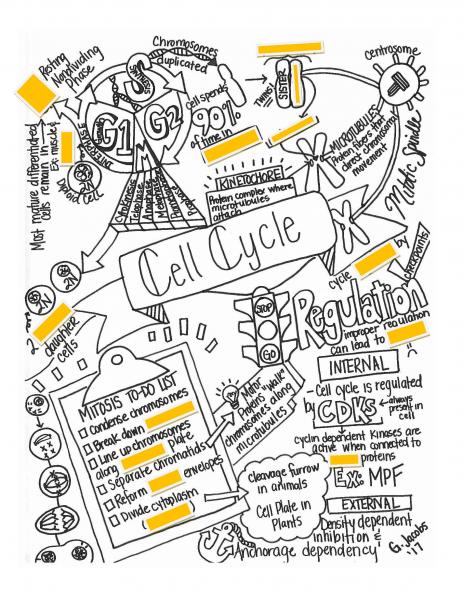 Resting
Nondividing
Phase
Most mature differentiated
cells remain in
Ex: muscles
Chromosomes
duplicated
S
SYNTHESIS
G1
G2
INTERPHASE
M
Diploid Cell
2N
Cytokinesis
Telophase
Anaphase
Metaphase
Prophase
Cell spends
90%
of time in
"TWINS"
SISTER
centrosome
MICROTUBULES
Protein fibers that
direct chromosomal
movement
Mitotic Spindle
KINETOCHORE
Protein complex where
microtubules
attach
Cell Cycle
cycle
by
checkpoints
2N
2N
2
daughter
cells
STOP
GO
Regulation
improper regulation
can lead to
MITOSIS TO-DO LIST
Condense chromosomes
Break down
Line up chromosomes
along plate
Separate chromatids
Reform envelopes
Divide cytoplasm
( )
Motor
Proteins "walk"
chromosomes along
microtubules
INTERNAL
- Cell cycle is regulated
by CDKs ← always
present in
cell
cyclin dependent kinases are
active when connected to
proteins
Ex: MPF
Cleavage furrow
in animals
Cell Plate in
Plants
EXTERNAL
Density dependent
inhibition &
Anchorage dependency
G. Jacobs
'17